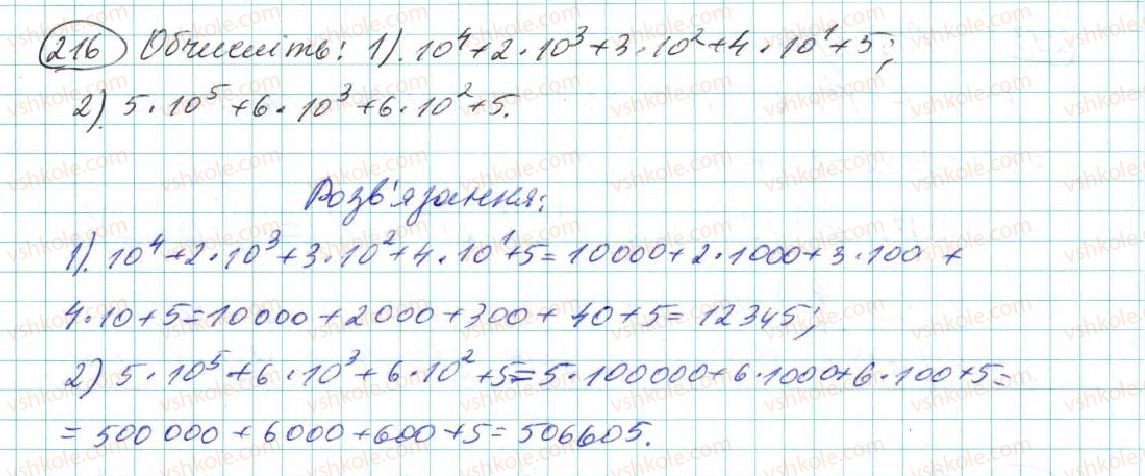 216 Обчисліть: 1). 10⁴+2·10³+3·10²+4·10¹+5;
2). 5·10⁵+6·10³+6·10²+5.
Розв'язання:
1). 10⁴+2·10³+3·10²+4·10¹+5=10000+2·1000+3·100+
4·10+5=10000+2000+300+40+5=12345;
2) 5·10⁵+6·10³+6·10²+5=5·100000+6·1000+6·100+5=
=500 000+6000+600+5=506605.